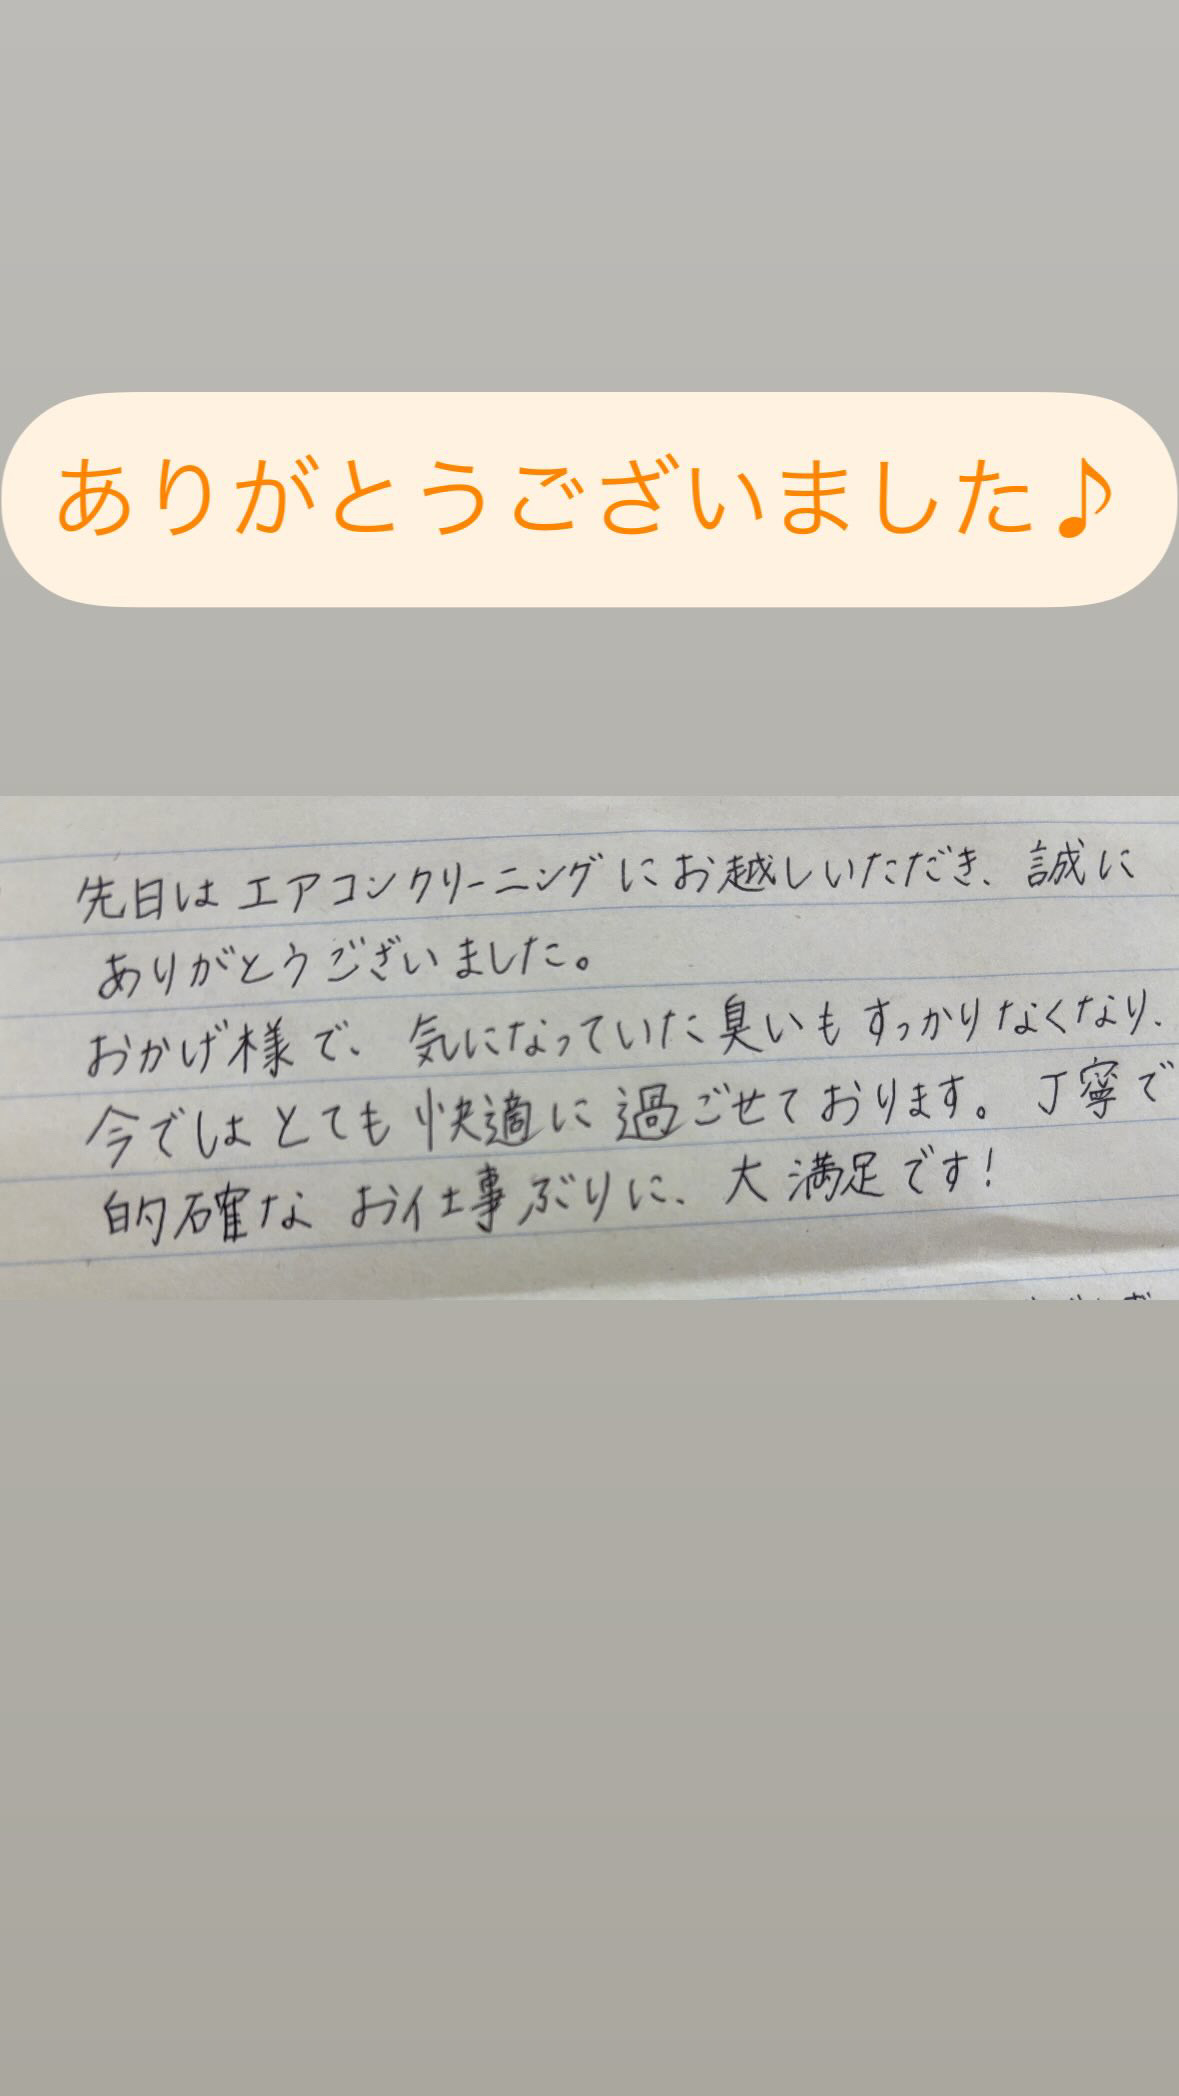 ありがとうございました♪
先日はエアコンクリーニングにお越しいただき、誠に
ありがとうございました。
おかげ様で、気になっていた臭いもすっかりなくなり、
今ではとても快適に過ごせております。丁寧で
的確なお仕事ぶりに、大満足です！